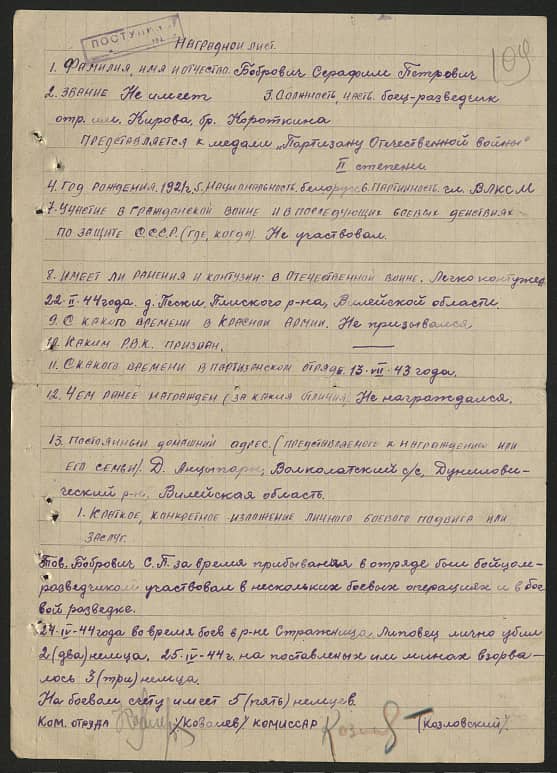 ПОСТУПИЛ
109
НАГРАДНОЙ ЛИСТ.
1. ФАМИЛИЯ, ИМЯ И ОТЧЕСТВО. Бобрович Серафим Петрович
2. ЗВАНИЕ Не имеет 3. ДОЛЖНОСТЬ, ЧАСТЬ. боец-разведчик
отр. им. Кирова, бр. Короткина
ПРЕДСТАВЛЯЕТСЯ К МЕДАЛИ „Партизану Отечественной войны"
II степени
4. ГОД РОЖДЕНИЯ. 1921г. 5. НАЦИОНАЛЬНОСТЬ. белорус 6. ПАРТИЙНОСТЬ. чл. ВЛКСМ
7. УЧАСТИЕ В ГРАЖДАНСКОЙ ВОЙНЕ И В ПОСЛЕДУЮЩИХ БОЕВЫХ ДЕЙСТВИЯХ
ПО ЗАЩИТЕ СССР. (ГДЕ, КОГДА). Не участвовал.
8. ИМЕЕТ ЛИ РАНЕНИЯ И КОНТУЗИИ В ОТЕЧЕСТВЕННОЙ ВОЙНЕ. Легко контужен
22. II. 44 года д. Пески Плисского р-на, Вилейской области.
9. С КАКОГО ВРЕМЕНИ В КРАСНОЙ АРМИИ. Не призывался.
10. КАКИМ Р.В.К. ПРИЗВАН. —
11. С КАКОГО ВРЕМЕНИ В ПАРТИЗАНСКОМ ОТРЯДЕ. 13. VII. 43 года.
12. ЧЕМ РАНЕЕ НАГРАЖДЕН (ЗА КАКИЯ ОТЛИЧИЯ) Не награждался.
13. ПОСТОЯННЫЙ ДОМАШНИЙ АДРЕС. (ПРЕДСТАВЛЯЕМОГО К НАГРАЖДЕНИЮ ИЛИ
ЕГО СЕМЬИ). Д. Волколатский с/с, Дунилови-
ческий р-н, Вилейская область.
1. КРАТКОЕ, КОНКРЕТНОЕ ИЗЛОЖЕНИЕ ЛИЧНОГО БОЕВОГО ПОДВИГА ИЛИ
ЗАСЛУГ.
Тов. Бобрович С.П. за время прибывания в отряде был бойцом-
разведчиком участвовал в нескольких боевых операциях и в бое
вой разведке.
24. IV. 44 года во время боев в р-не Стражница, Липовец лично убил
2 (два) немца. 25. IV. 44 г. на поставленых им минах взорва-
лось 3 (три) немца.
На боевом счету имеет 5 (пять) немцев.
КОМ. ОТРЯДА /Ковалев/ КОМИССАР (Козловский).